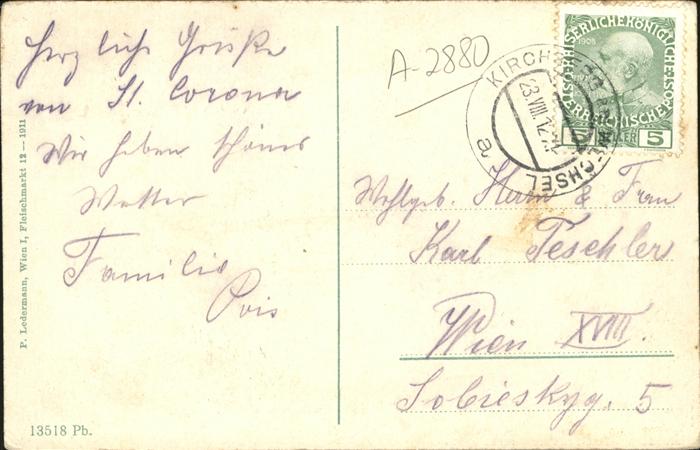 Herzliche Grüße
von St. Corona
Wir haben schönes
Wetter
Familie
P. Ledermann, Wien I, Fleischmarkt 12 — 1911
13518 Pb.
A-2880
KIRCHBERG AM WECHSEL
23.VIII.12
a
KAISERLICHE KÖNIGLICHE
1908
ÖSTERREICHISCHE
5 HELLER 5
Wohlgeb. Herrn & Frau
Karl Teschler
Wien XVIII.
Sobieskyg. 5